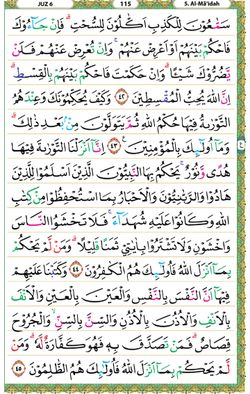 JUZ 6 115 5. Al-Mâ'idah
سَمَّٰعُونَ لِلْكَذِبِ أَكَّٰلُونَ لِلسُّحْتِ ۚ فَإِن جَآءُوكَ
فَٱحْكُم بَيْنَهُمْ أَوْ أَعْرِضْ عَنْهُمْ ۖ وَإِن تُعْرِضْ عَنْهُمْ فَلَن
يَضُرُّوكَ شَيْـًٔا ۖ وَإِنْ حَكَمْتَ فَٱحْكُم بَيْنَهُم بِٱلْقِسْطِ ۚ
إِنَّ ٱللَّهَ يُحِبُّ ٱلْمُقْسِطِينَ ٤٢ وَكَيْفَ يُحَكِّمُونَكَ وَعِندَهُمُ
ٱلتَّوْرَىٰةُ فِيهَا حُكْمُ ٱللَّهِ ثُمَّ يَتَوَلَّوْنَ مِنۢ بَعْدِ ذَٰلِكَ ۚ
وَمَآ أُو۟لَٰٓئِكَ بِٱلْمُؤْمِنِينَ ٤٣ إِنَّآ أَنزَلْنَا ٱلتَّوْرَىٰةَ فِيهَا
هُدًى وَنُورٌ ۚ يَحْكُمُ بِهَا ٱلنَّبِيُّونَ ٱلَّذِينَ أَسْلَمُوا۟ لِلَّذِينَ
هَادُوا۟ وَٱلرَّبَّٰنِيُّونَ وَٱلْأَحْبَارُ بِمَا ٱسْتُحْفِظُوا۟ مِن كِتَٰبِ
ٱللَّهِ وَكَانُوا۟ عَلَيْهِ شُهَدَآءَ ۚ فَلَا تَخْشَوُا۟ ٱلنَّاسَ
وَٱخْشَوْنِ وَلَا تَشْتَرُوا۟ بِـَٔايَٰتِى ثَمَنًا قَلِيلًا ۚ وَمَن لَّمْ يَحْكُم
بِمَآ أَنزَلَ ٱللَّهُ فَأُو۟لَٰٓئِكَ هُمُ ٱلْكَٰفِرُونَ ٤٤ وَكَتَبْنَا عَلَيْهِمْ
فِيهَآ أَنَّ ٱلنَّفْسَ بِٱلنَّفْسِ وَٱلْعَيْنَ بِٱلْعَيْنِ وَٱلْأَنفَ
بِٱلْأَنفِ وَٱلْأُذُنَ بِٱلْأُذُنِ وَٱلسِّنَّ بِٱلسِّنِّ وَٱلْجُرُوحَ
قِصَاصٌ ۚ فَمَن تَصَدَّقَ بِهِۦ فَهُوَ كَفَّارَةٌ لَّهُۥ ۚ وَمَن
لَّمْ يَحْكُم بِمَآ أَنزَلَ ٱللَّهُ فَأُو۟لَٰٓئِكَ هُمُ ٱلظَّٰلِمُونَ ٤٥